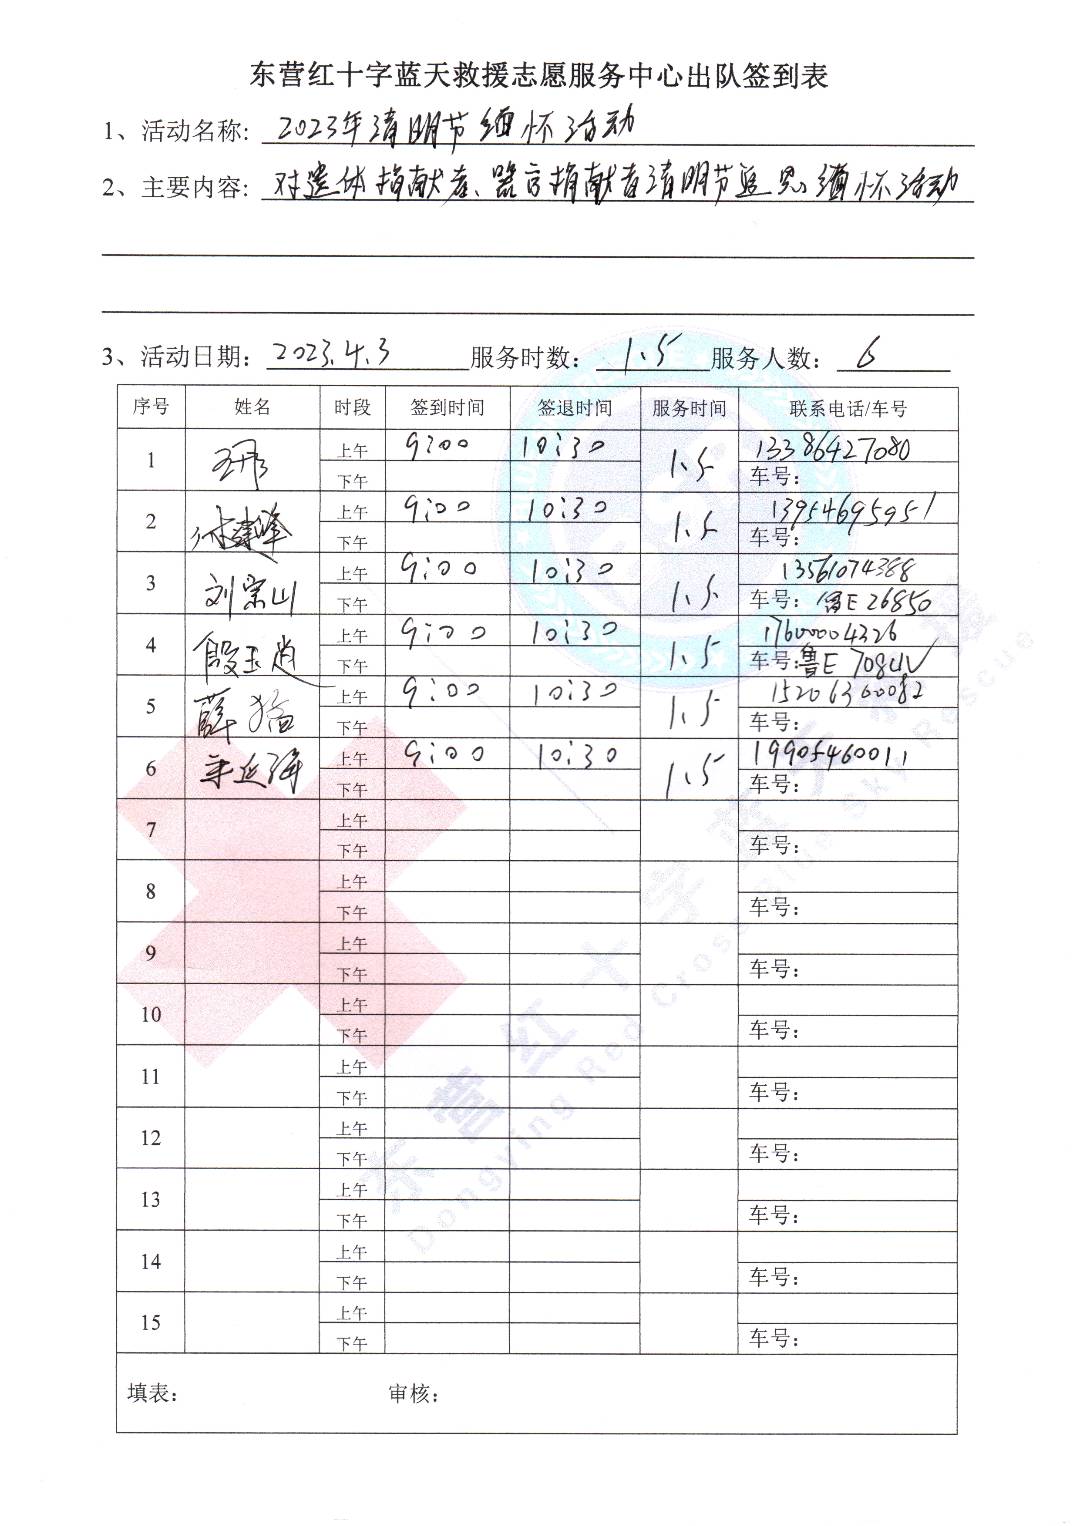 东营红十字蓝天救援志愿服务中心出队签到表
1、活动名称: 2023年清明节缅怀活动
2、主要内容: 对遗体捐献者、器官捐献者清明节追思缅怀活动
3、活动日期: 2023.4.3 服务时数: 1.5 服务人数: 6
序号 姓名 时段 签到时间 签退时间 服务时间 联系电话/车号
1 上午 9:00 10:30 1.5 13386427080
下午 车号:
2 付建峰 上午 9:00 10:30 1.5 13954695951
下午 车号:
3 刘宗山 上午 9:00 10:30 1.5 13561074388
下午 车号: 鲁E 26850
4 殷玉尚 上午 9:00 10:30 1.5 17600004326
下午 车号: 鲁E 7084V
5 薛猛 上午 9:00 10:30 1.5 15206360082
下午 车号:
6 宋延强 上午 9:00 10:30 1.5 19905460011
下午 车号:
7 上午
下午 车号:
8 上午
下午 车号:
9 上午
下午 车号:
10 上午
下午 车号:
11 上午
下午 车号:
12 上午
下午 车号:
13 上午
下午 车号:
14 上午
下午 车号:
15 上午
下午 车号:
填表: 审核:
东营红十字蓝天救援
Dongying Red Cross Blue Sky Rescue